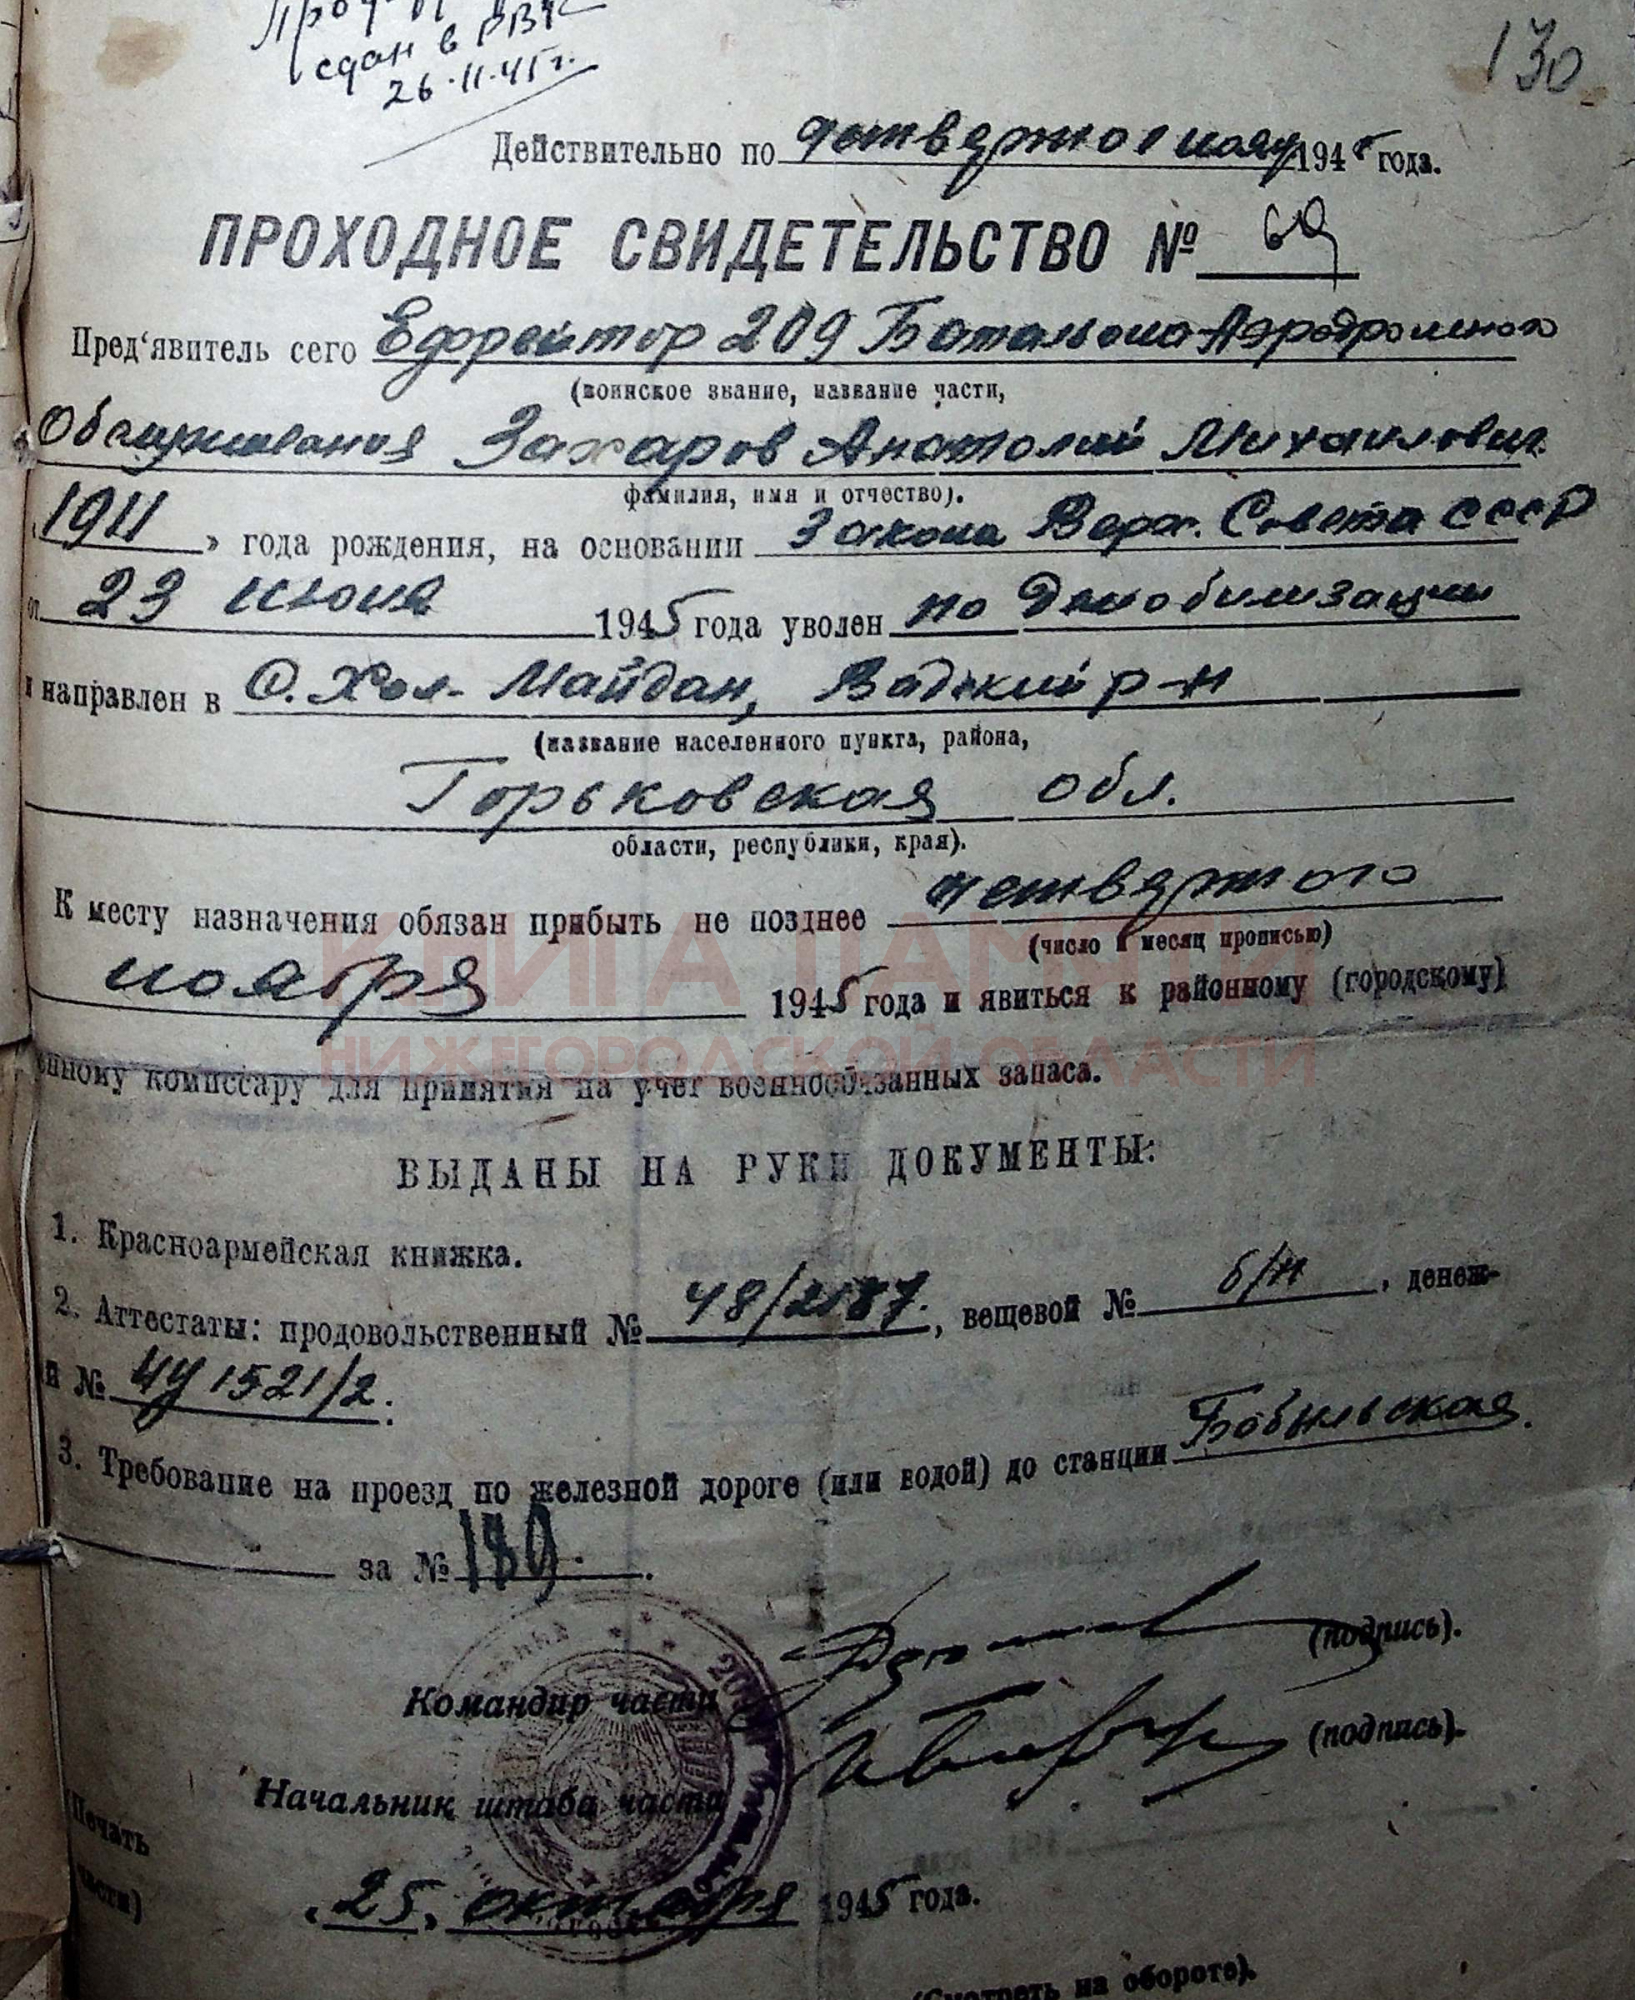 сдан в РВК
26.11.45 г.
130
Действительно по четвертое нояб 1945 года.
ПРОХОДНОЕ СВИДЕТЕЛЬСТВО № 69
Пред'явитель сего Ефрейтор 209 Батальона Аэродромного
(воинское звание, название части,
Обслуживания Захаров Анатолий Михайлович
фамилия, имя и отчество).
1911 » года рождения, на основании Закона Верх. Совета СССР
от 23 июня 1945 года уволен по Демобилизации
и направлен в С. Хол-Майдан, Вадский р-н
(название населенного пункта, района,
Горьковская обл.
области, республики, края).
К месту назначения обязан прибыть не позднее четвертого
(число и месяц прописью)
КНИГА ПАМЯТИ
ноября 1945 года и явиться к районному (городскому)
НИЖЕГОРОДСКОЙ ОБЛАСТИ
енному комиссару для принятия на учет военнообязанных запаса.
ВЫДАНЫ НА РУКИ ДОКУМЕНТЫ:
1. Красноармейская книжка.
2. Аттестаты: продовольственный № 48/2187., вещевой № б/н, денеж-
й № 1521/2.
3. Требование на проезд по железной дороге (или водой) до станции Бобыльская.
за № 189.
(подпись).
Командир части
(подпись).
Начальник штаба части
(Печать
части)
«25» октября 1945 года.
(Смотреть на обороте).